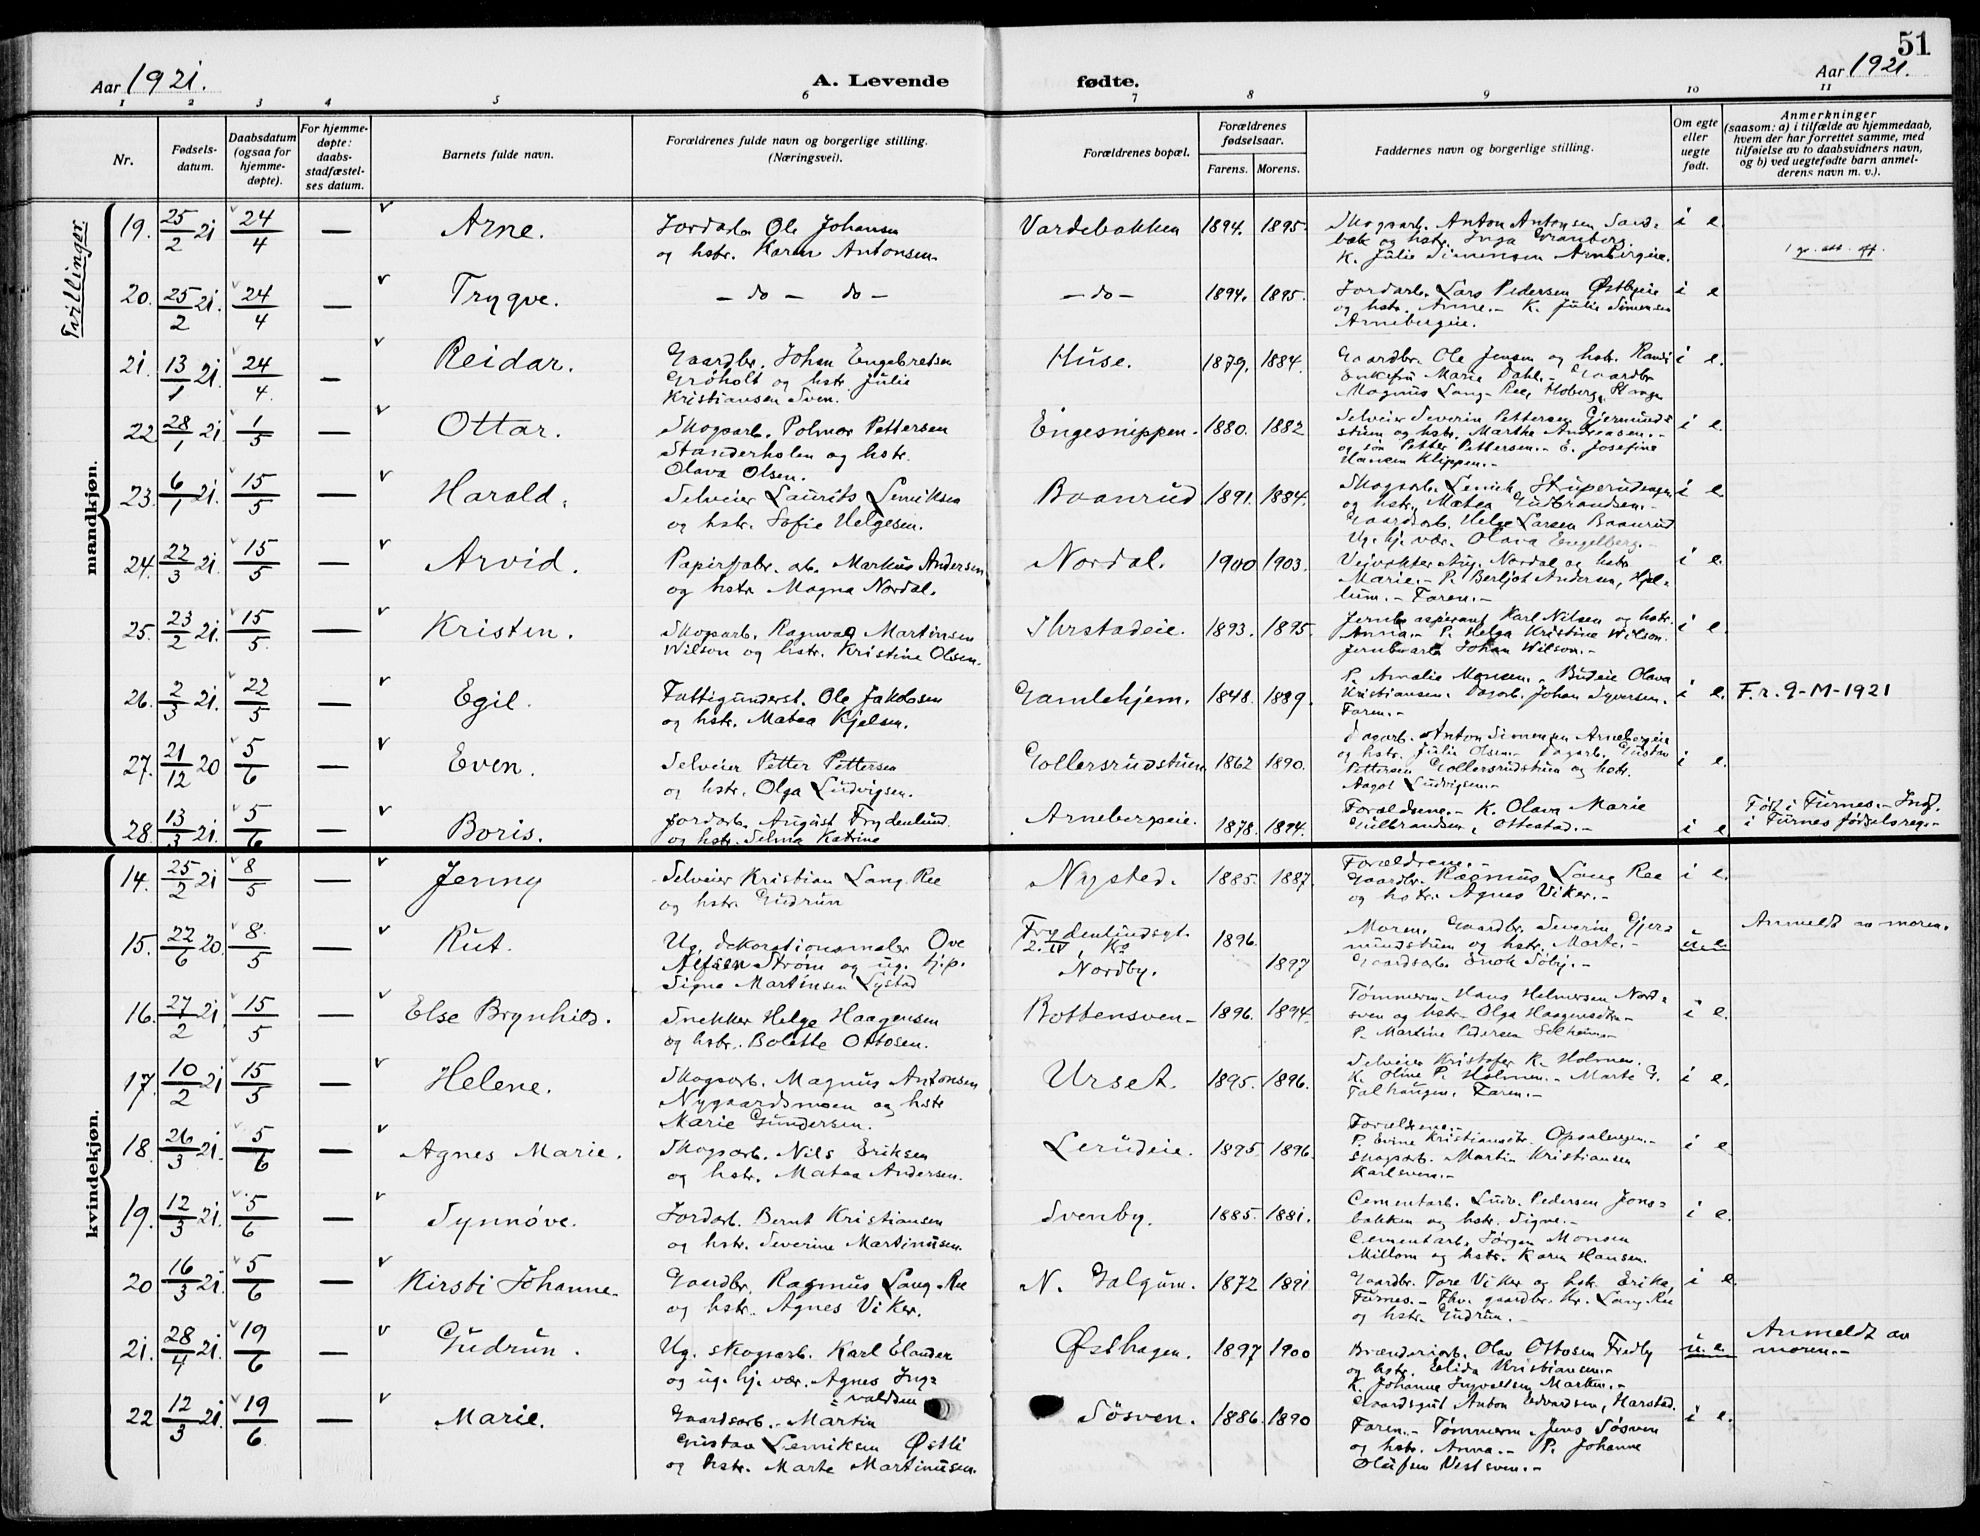 51
Aar 1921. A. Levende fødte. Aar 1921.
1 2 3 4 5 6 7 8 9 10 11
Nr. Fødsels-datum. Daabsdatum (ogsaa for hjemme-døpte). For hjemme-døpte: daabs-stadfæstel-ses datum. Barnets fulde navn. Forældrenes fulde navn og borgerlige stilling. (Næringsvei). Forældrenes bopæl. Forældrenes fødselsaar. Farens. Morens. Faddernes navn og borgerlige stilling. Om egte eller uegte født. Anmerkninger (saasom: a) i tilfælde av hjemmedaab, hvem der har forrettet samme, med tilføielse av to daabsvidners navn, og b) ved uegtefødte barn anmel-derens navn m. v.).
Tvillinger
mandkjøn.
19. 25/2 21 24/4 — Arne. Jordarb. Ole Johansen Vardebakken 1894. 1895. Skogsarb. Anton Antonsen Sand-
og hstr. Karen Antonsen. bak og hstr. Inga Granberg. i e
K. Julie Simensen Arnbergeie.
20. 25/2 21. 24/4 — Trygve. — do — do — — do — 1894. 1895. Jordarb. Lars Pedersen Østbyeie i e
og hstr. Anne. — K. Julie Simensen
Arnebergeie.
21. 13/1 21. 24/4. — Reidar. Gaardbr. Johan Engebretsen Huse. 1879. 1884. Gaardbr. Ole Jensen og hstr. Randi i e.
Grøholt og hstr. Julie Enkefru Marie Dahl. — Gaardbr.
Kristiansen Sven. Magnus Lang-Ree, Hoberg, Stange
22 28/1 21. 1/5 — Ottar. Skogsarb. Polmar Pettersen Engesnippen. 1880. 1882 Selveier Severin Pettersen Gjermund- i e.
Standerholen og hstr. stuen og hstr. Marthe Andreasen. —
Olava Olsen. og søn Petter Pettersen. — E. Josefine
Hansen Klippen. —
23. 6/1 21. 15/5 — Harald. Selveier Laurits Lemiksen Baanrud 1891. 1884. Skogsarb. i e.
og hstr. Sofie Helgesen. og hstr. Matea Gulbrandsen. —
Gaardsarb. Helge Larsen Baanrud
Ug. hj. vær. Olava Engelberg. —
24. 22/3 21. 15/5 — Arvid. Papirfabr. arb. Markus Andersen Nordal. 1900 1903. Veivokter Aug. Nordal og hstr. i e.
og hstr. Magna Nordal. Marie. — P. Berljot Andersen, Hjel-
lum. — Faren. —
25. 23/2 21. 15/5. — Kristen. Skogsarb. Ragnvald Martinsen Ihrstadeie. 1893. 1895. Jernb. aspirant Karl Nilsen og hstr. i e.
Wilson og hstr. Kristine Olsen. Anna. — P. Helga Kristine Wilson.
Johan Wilson. —
26. 2/3 21. 22/5 — Egil. Fattigunderst. Ole Jakobsen Gamlehjem. 1848. 1889. P. Amalie Monsen. Budeie Olava i e. F. r. 9-M-1921
og hstr. Matea Kjelsen. Kristiansen. Dagarb. Johan Syversen.
Faren. —
27. 21/12 20 5/6 — Even. Selveier Petter Pettersen Gollersrudstuen 1862 1890. Dagarb. Anton Simensen Arnebergeie i e.
og hstr. Olga Ludvigsen. og hstr. Julie Olsen. — Dagarb. Gustav
Pettersen Gollersrudstuen og hstr.
Aagot Ludvigsen. —
28. 13/3 21. 5/6 — Boris. Jordarb. August Frydenlund. Arnebergeie. 1878. 1894. Forældrene. — K. Olava Marie i e Født i Furnes. — Indf.
og hstr. Selma Katrine Gulbrandsen, Ottestad. — i Furnes fødselsreg. —
kvindekjøn.
14. 25/2 21 8/5 — Jenny Selveier Kristian Lang-Ree Nysted. 1885. 1887. Forældrene. — i e.
og hstr. Gudrun Gaardbr. Rasmus Lang Ree
og hstr. Agnes Viker. —
15. 22/6 20. 8/5 — Rut. Ug. dekorationsmaler Ove Frydenlundsgt. 1896. Moren. Gaardbr. Severin Gjer- u. e. Anmeldt av moren.
Alfsen Strøm og ug. tj.p. 2. IV Kra mundstuen og hstr. Marte. —
Signe Martinsen Lystad Nordby. 1897 Gaardsarb. Enok Søby. —
16. 27/2 21. 15/5 — Else Brynhild. Snekker Helge Haagensen Bottensven — 1896. 1894. Tømmerm. Hans Helmersen Nord- i e.
og hstr. Bolette Ottosen. sven og hstr. Olga Haagensdtr. —
P. Martine Pedersen Solheim. —
17. 10/2 21 15/5 — Helene. Skogsarb. Magnus Antonsen Urset. 1895. 1896. Selveier Kristofer K. Holmen. i e.
Nygaardsmoen og hstr K. Oline P. Holmen. — Marte G.
Marie Gundersen. Falhaugen. Faren. —
18. 26/3 21. 5/6 — Agnes Marie. Skogsarb. Nils Eriksen Lerudeie. 1895. 1896. Forældrene. — i e
og hstr. Matea Andersen. P. Evine Kristiansdtr. Opsalengen. —
Skogsarb. Martin Kristiansen
Karlsven. —
19. 12/3 21. 5/6 — Synnøve. Jordarb. Bernt Kristiansen Svenby. 1885. 1881. Cementarb. Ludv. Pedersen Jons- i e.
og hstr. Severine Martinusen. bakken og hstr. Signe. —
Cementarb. Jørgen Monsen
Millom og hstr. Karen Hansen.
20 16/3 21. 5/6 — Kirsti Johanne. Gaardbr. Rasmus Lang-Ree N. Galgum. 1872 1891 Gaardbr. Tore Viker og hstr. Erika, i e.
og hstr. Agnes Viker. Furnes. — Fhv. gaardbr. Kr. Lang-Ree
og hstr. Gudrun. —
21. 28/4 21. 19/6 — Gudrun. Ug. skogsarb. Karl Elander Østhagen. 1897 1900 Brænderiarb. Olav Ottosen Fredly u. e. Anmeldt av
og ug. hj. vær. Agnes Ing- og hstr. Elida Kristiansen. — moren. —
valdsen K. Johanne Ingvaldsen Marken. —
22 12/3 21. 19/6 — Marie. Gaardsarb. Martin Søsven. 1886. 1890 Gaardsgut Anton Edvardsen, Harstad. i e.
Gustav Lemiksen Østli Faren. — Tømmerm. Jens Søsven
og hstr. Marte Martinusen. og hstr. Anna. — P. Johanne
Olufsen Vestsven. —